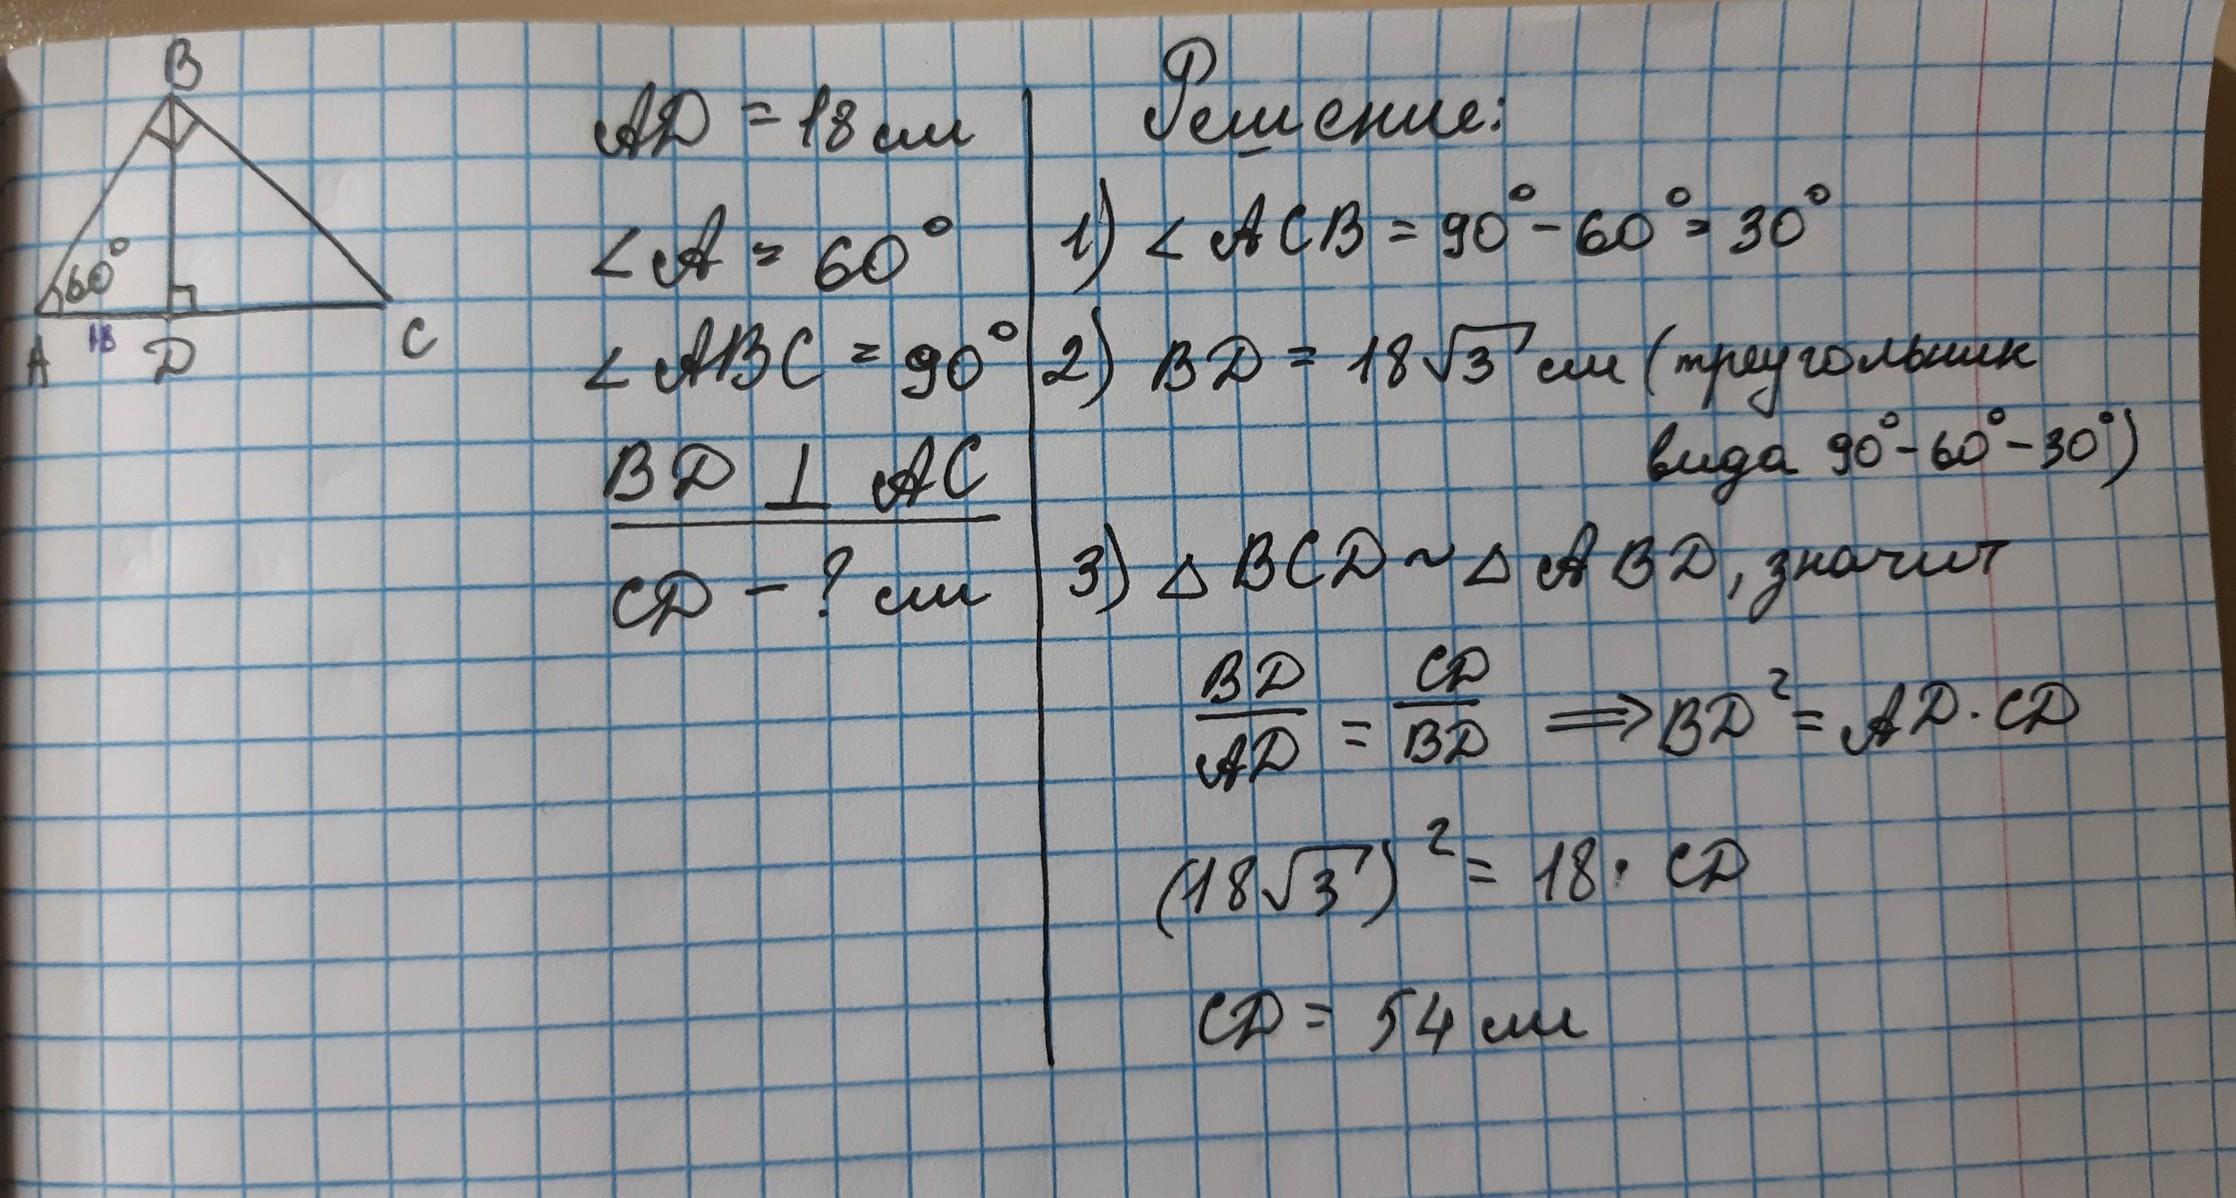 B
60°
A 18 D C
AD = 18 см
∠A = 60°
∠ABC = 90°
BD ⊥ AC
CD - ? см
Решение:
1) ∠ACB = 90° - 60° = 30°
2) BD = 18√3 см (треугольник
вида 90° - 60° - 30°)
3) △BCD ~ △ABD, значит
BD/AD = CD/BD ⟹ BD² = AD · CD
(18√3)² = 18 · CD
CD = 54 см